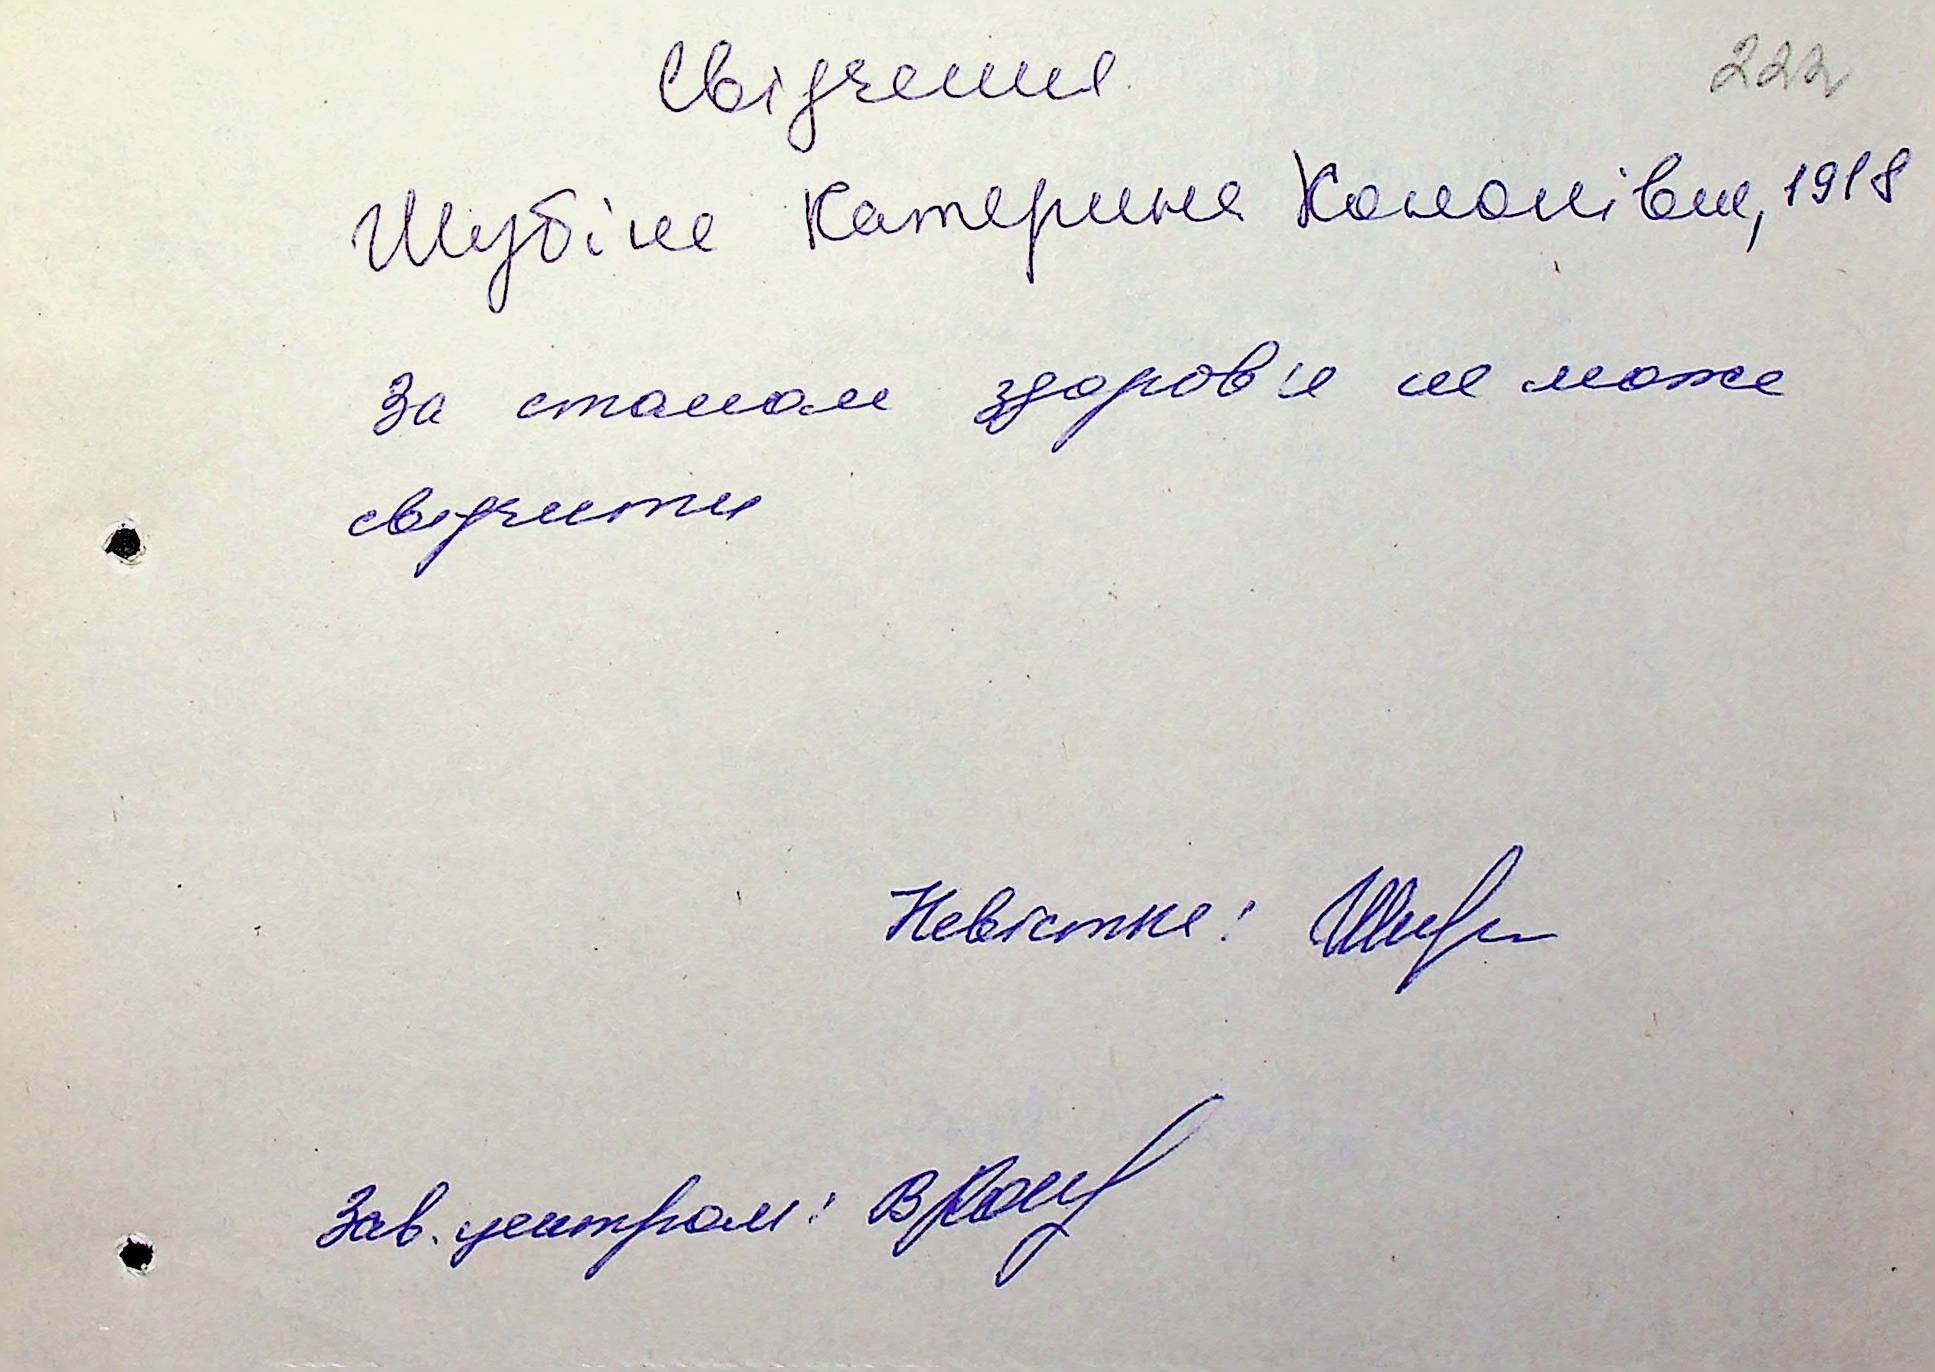 222
Свідчення
Шубіна Катерина Кононівна, 1918
За станом здоров'я не може
свідчити
Невістка:
Зав. центром: